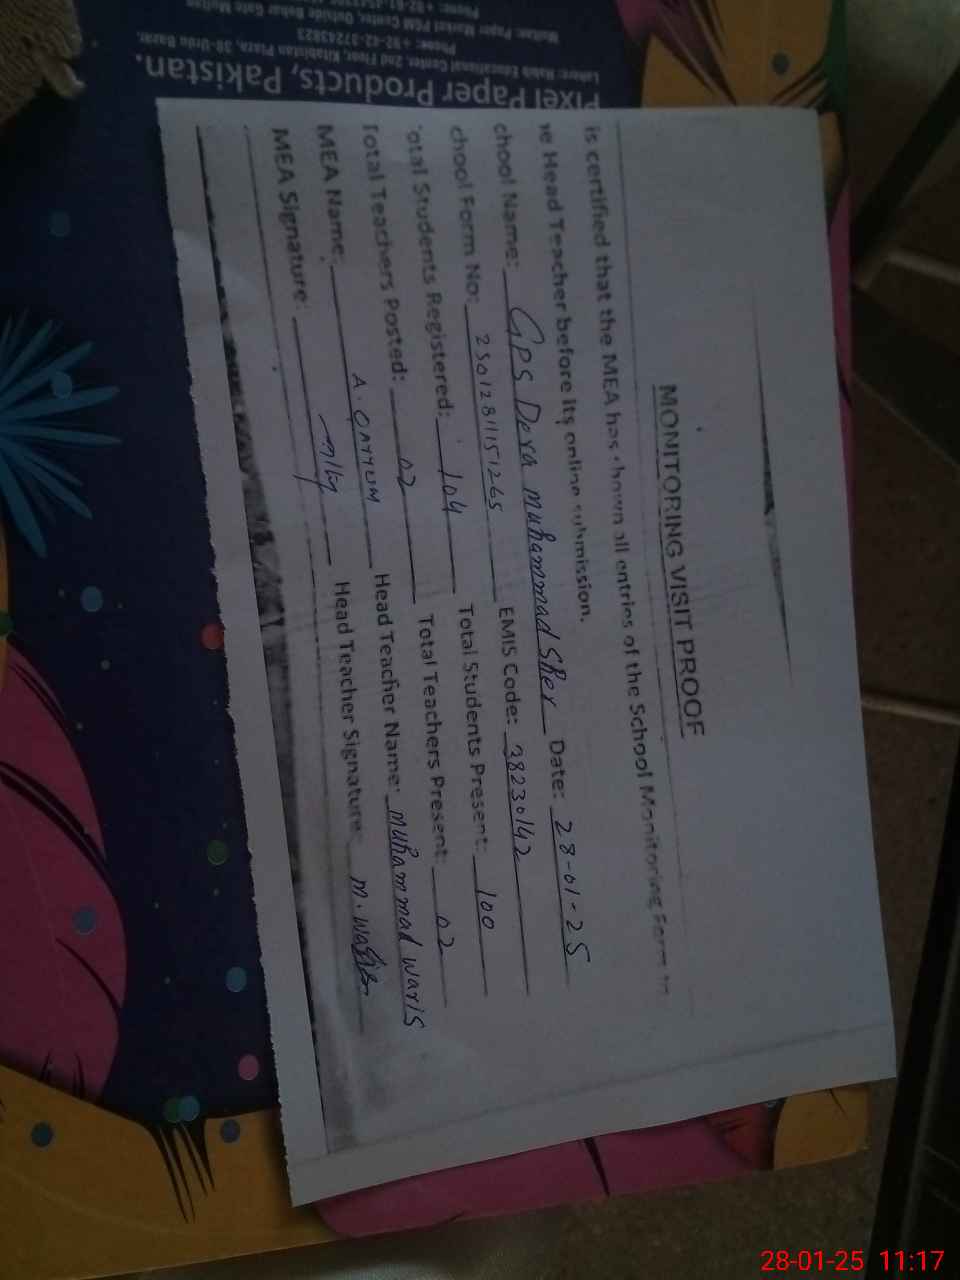 MONITORING VISIT PROOF
is certified that the MEA has shown all entries of the School Monitoring Form to
he Head Teacher before its online submission.
chool Name: GPS Dera muhammad Sher Date: 28-01-25
chool Form No: 2501281151265 EMIS Code: 38230142
otal Students Registered: 104 Total Students Present: 100
Total Teachers Posted: 02 Total Teachers Present: 02
MEA Name: A. QAYYUM Head Teacher Name: muhammad waris
MEA Signature: Head Teacher Signature: M. Waris
Pixel Paper Products, Pakistan.
Lahore: Habib Educational Center, 2nd Floor, Kitabistan Plaza, 38-Urdu Bazar.
Phone: +92-42-37243823
Multan: Paper Market PGM Center, Outside Bohar Gate Multan
28-01-25 11:17